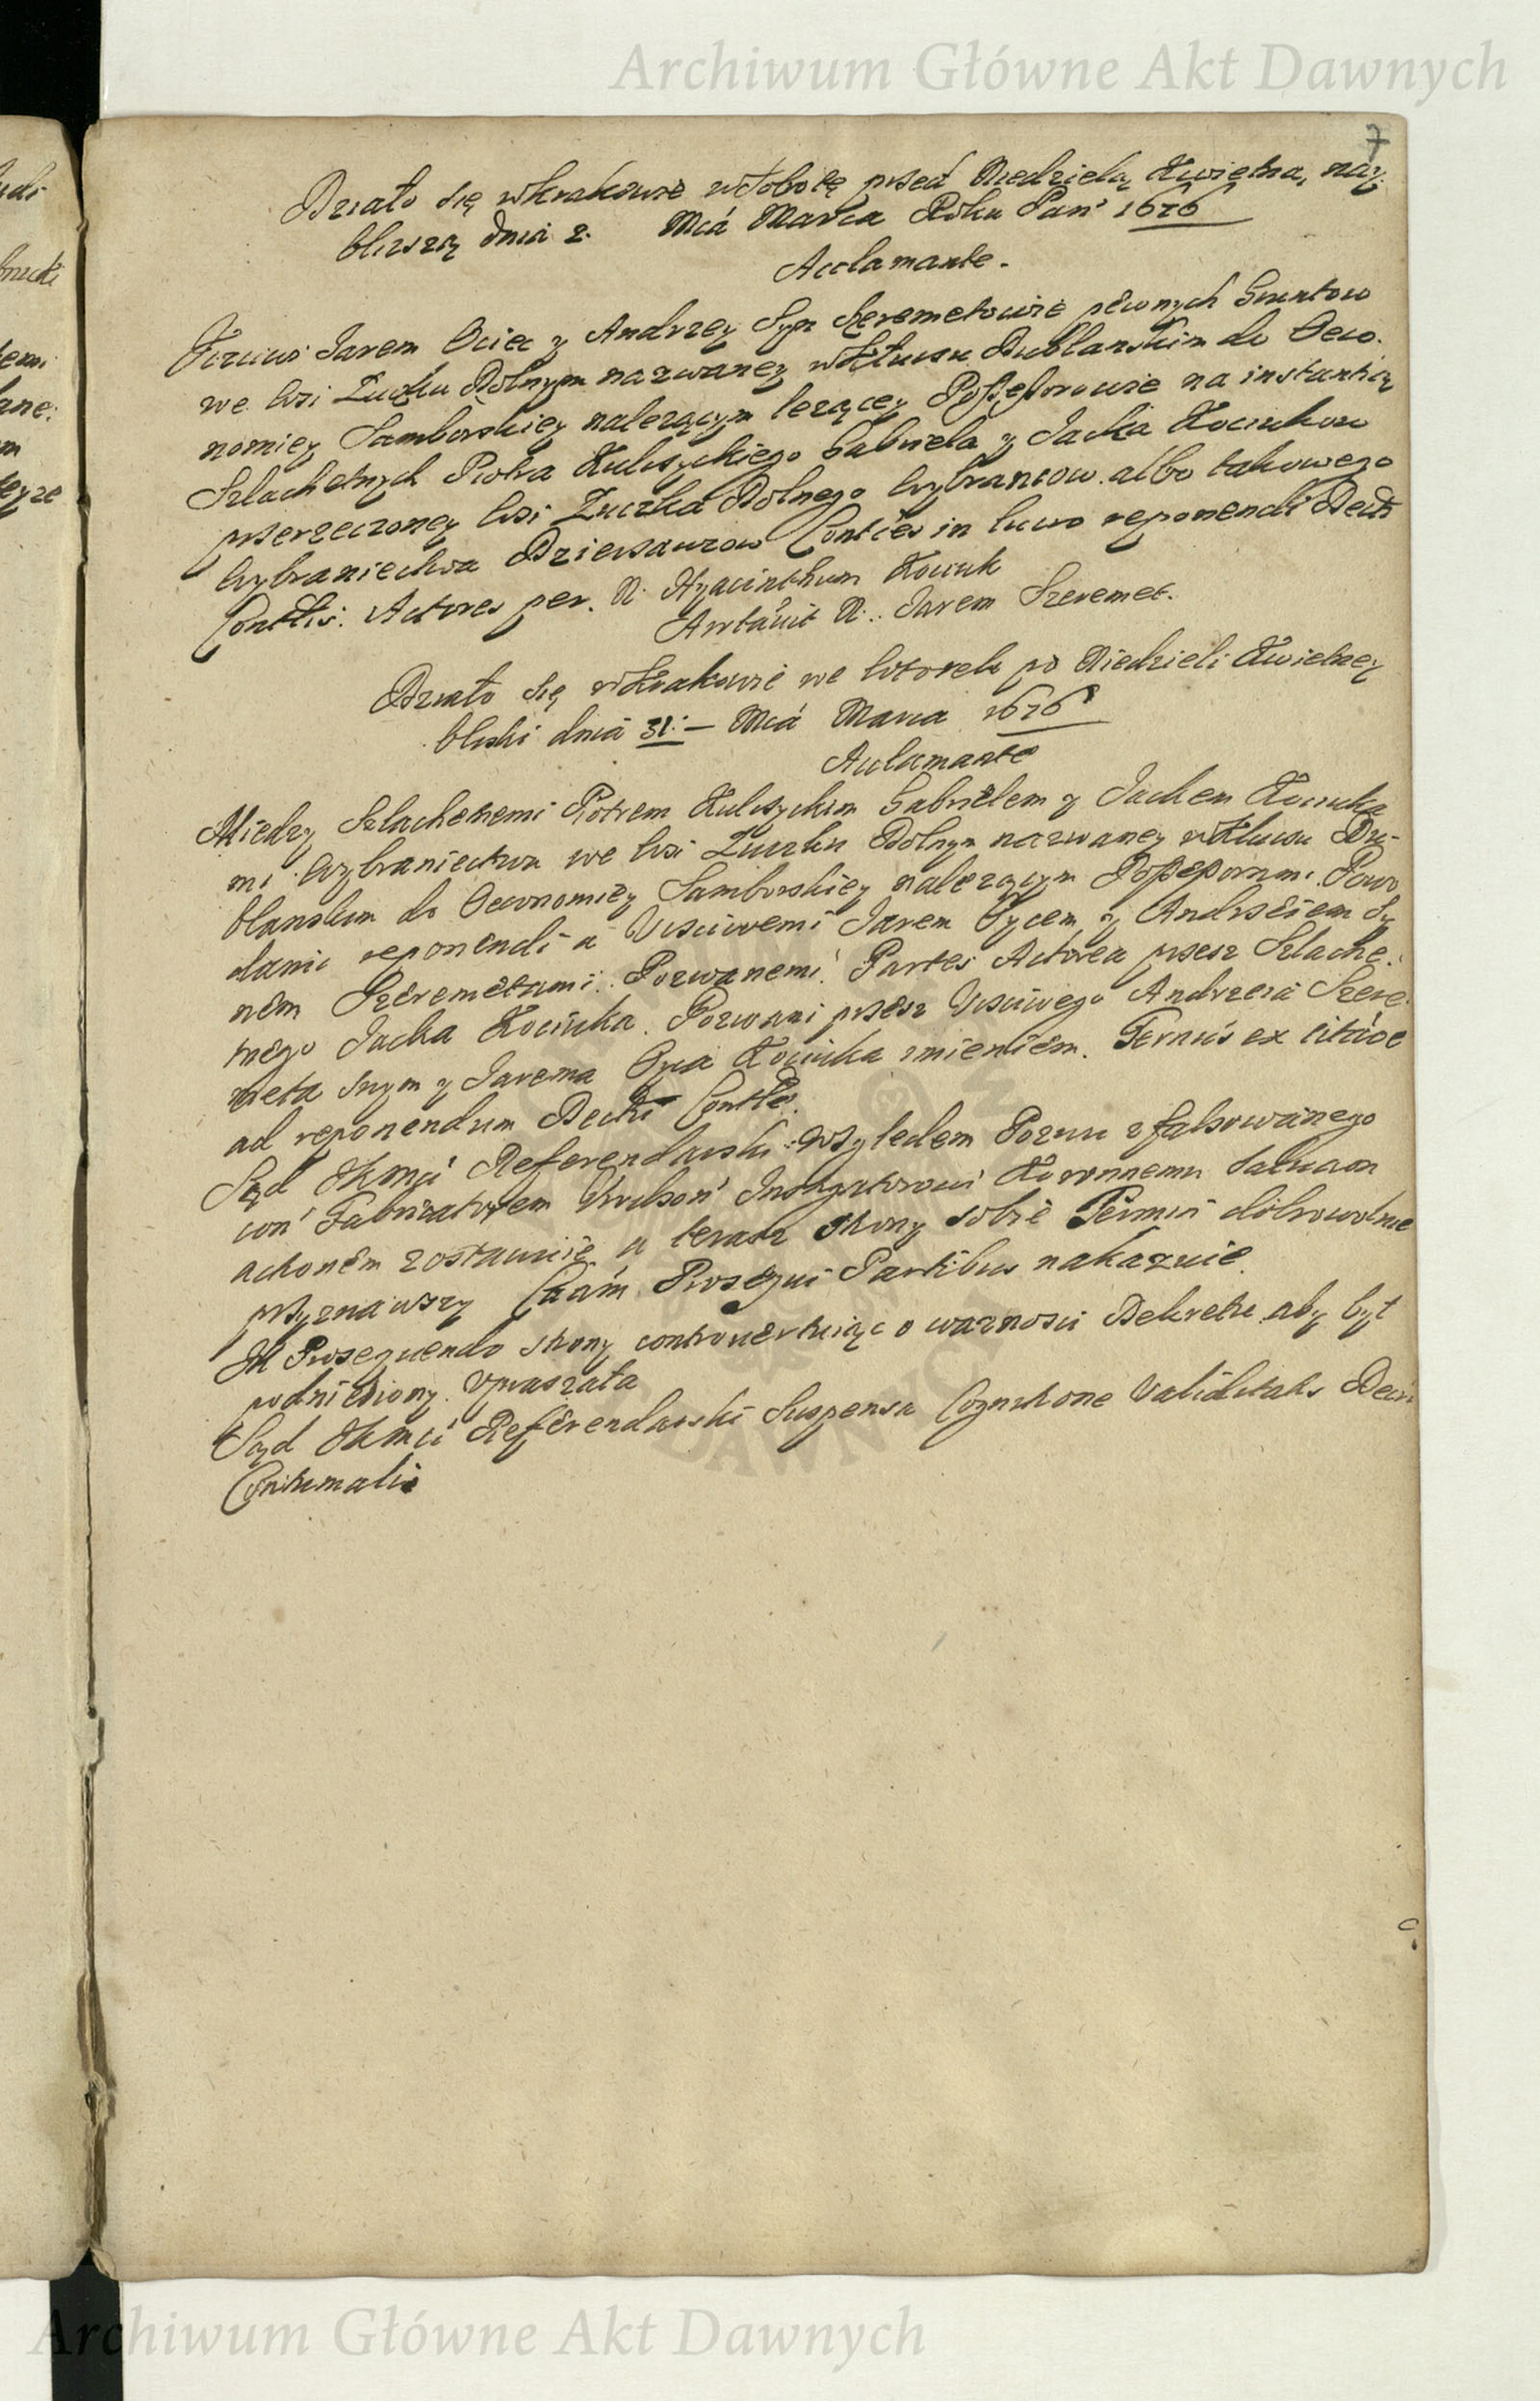 Archiwum Główne Akt Dawnych
7
Działo się w Krakowie w Sobotę przed Niedzielą Kwietną nay
bliszszą dnia 2. Mcá Marca Roku Pan 1676
Acclamante.
Jarem Ociec y Andrzey Syn Szeremetowie pewnych Gruntow
we wsi Łuczku Dolnym nazwaney w Kluczu Dublanskim do Oeco-
nomiey Samborskiey nalezącym lezącey Possessorowie na instantią
Szlachetnych Piotra Kulczyckiego Gabriela y Jacka Kociukow
przerzeczoney wsi Łuczka Dolnego wybrancow albo takowego
wybraniectwa Dzierzawcow in lucro reponendi Decti
Conttis. Actores per N. Hyacinthum Kociuk
N. Jarem Szeremet.
Działo się w Krakowie we Wtorek po Niedzieli Kwietney
bliski dnia 31. Mcá Marca 1676
Acclamante
Między Szlachetnemi Piotrem Kulczyckim Gabrielem y Jackem Kociuka
mi wybraniectwa we wsi Łuczku Dolnym nazwaney w Kluczu Du-
blanskim do Oeconomiey Samborskiey nalezącym Possessorami Powo
dami reponendi a Uczciwemi Jarem Oycem y Andrzeiem Sy
nem Szeremetami Pozwanemi. Partes Actorea przesz Szlache-
tnego Jacka Kociuka. Pozwani przesz Uczciwego Andrzeia Szere
meta swym y Jarema Oyca Kociuka imieniem. Termin ex citaoe
ad reponendum Decti Conttis.
Sąd JKMci Referendarski względem Pozwu zfalsowanego
Fabricatorem Instygatorowi Koronnemu salvam
actionem zostawuie a terasz strony sobie Termin dobrowolnie
przyznawszy Caam Prosequi Partibus nakazuie.
In Prosequendo strony controwertuiąc o wazności Dekretu aby był
podniesiony. Vpraszała
Sąd JKMci Referendarski Suspensa Cognitione Validitatis Decti
Contumatis
Archiwum Główne Akt Dawnych